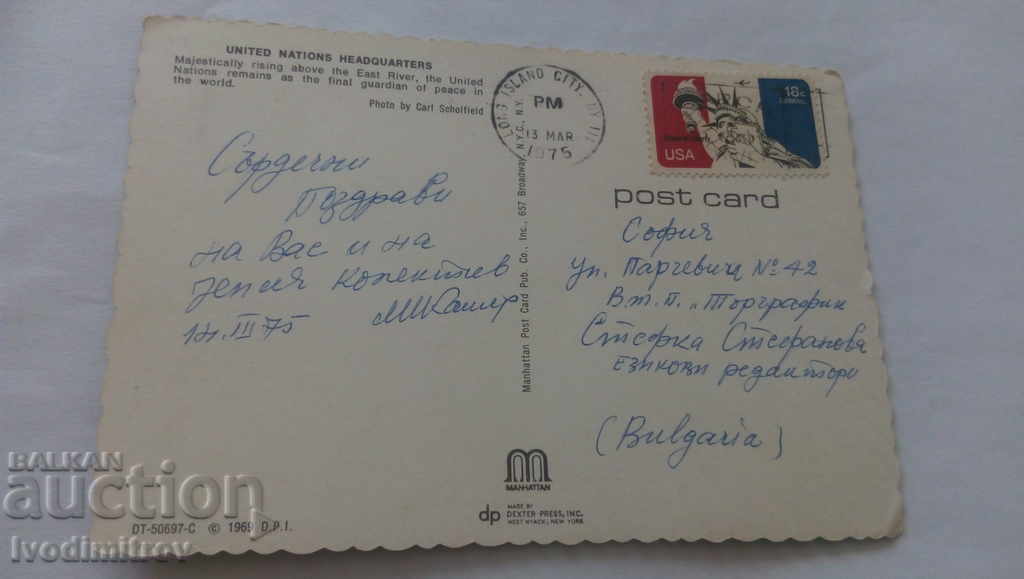 UNITED NATIONS HEADQUARTERS
Majestically rising above the East River, the United
Nations remains as the final guardian of peace in
the world.
Photo by Carl Scholfield
Сърдечни
Поздрави
на Вас и на
целия колектив
III 75
LONG ISLAND CITY, NY
PM
13 MAR
1975
18c
USA
post card
София
ул. Парчевич № 42
В.т.п. „Торгграфик
Стефка Стефанова
езикови редактори
(Bulgaria)
Manhattan Post Card Pub. Co., Inc., 657 Broadway, N.Y.C., N.Y.
MANHATTAN
dp
MADE BY
DEXTER PRESS, INC.
WEST NYACK, NEW YORK
DT-50697-C © 1969 D.P.I.
BALKAN
auction
Ivodimitrov